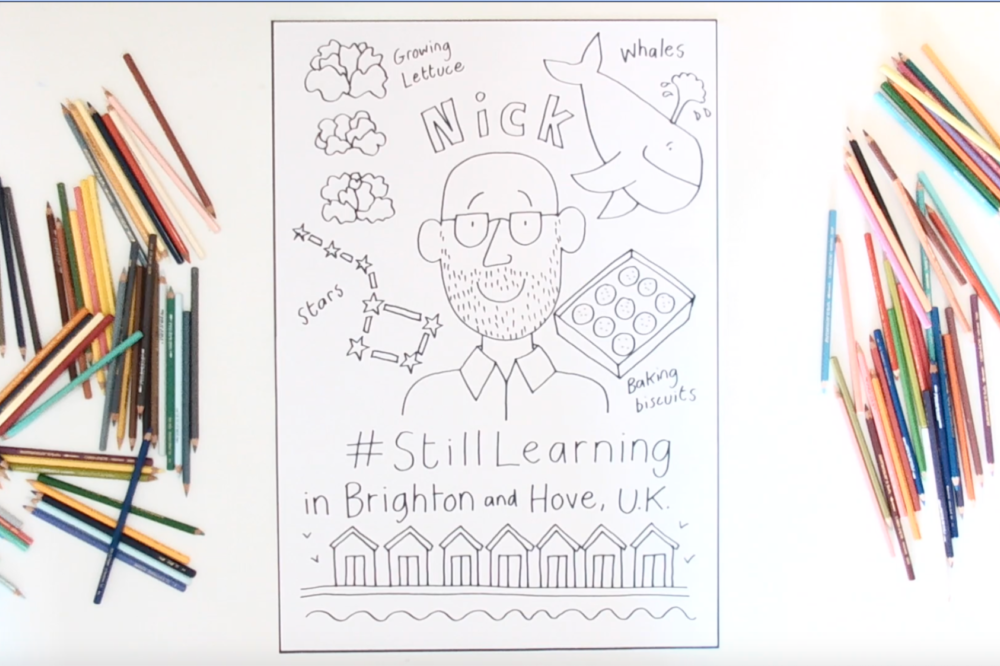 Growing
Lettuce
Whales
Nick
Stars
Baking
biscuits
#StillLearning
in Brighton and Hove, U.K.